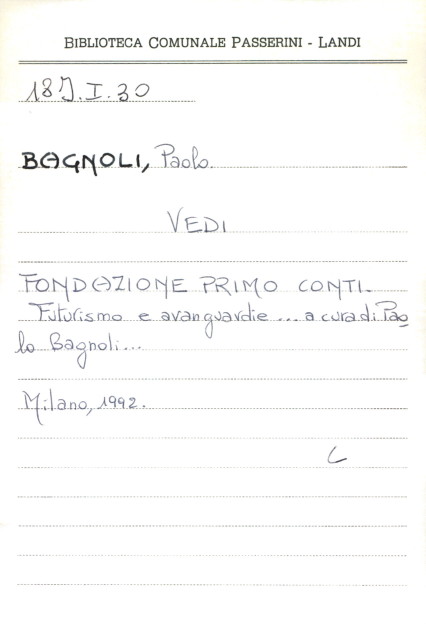 BIBLIOTECA COMUNALE PASSERINI - LANDI
18J.I.30
BAGNOLI, Paolo.
VEDI
FONDAZIONE PRIMO CONTI.
Futurismo e avanguardie... a cura di Pao
lo Bagnoli...
Milano, 1992.
C